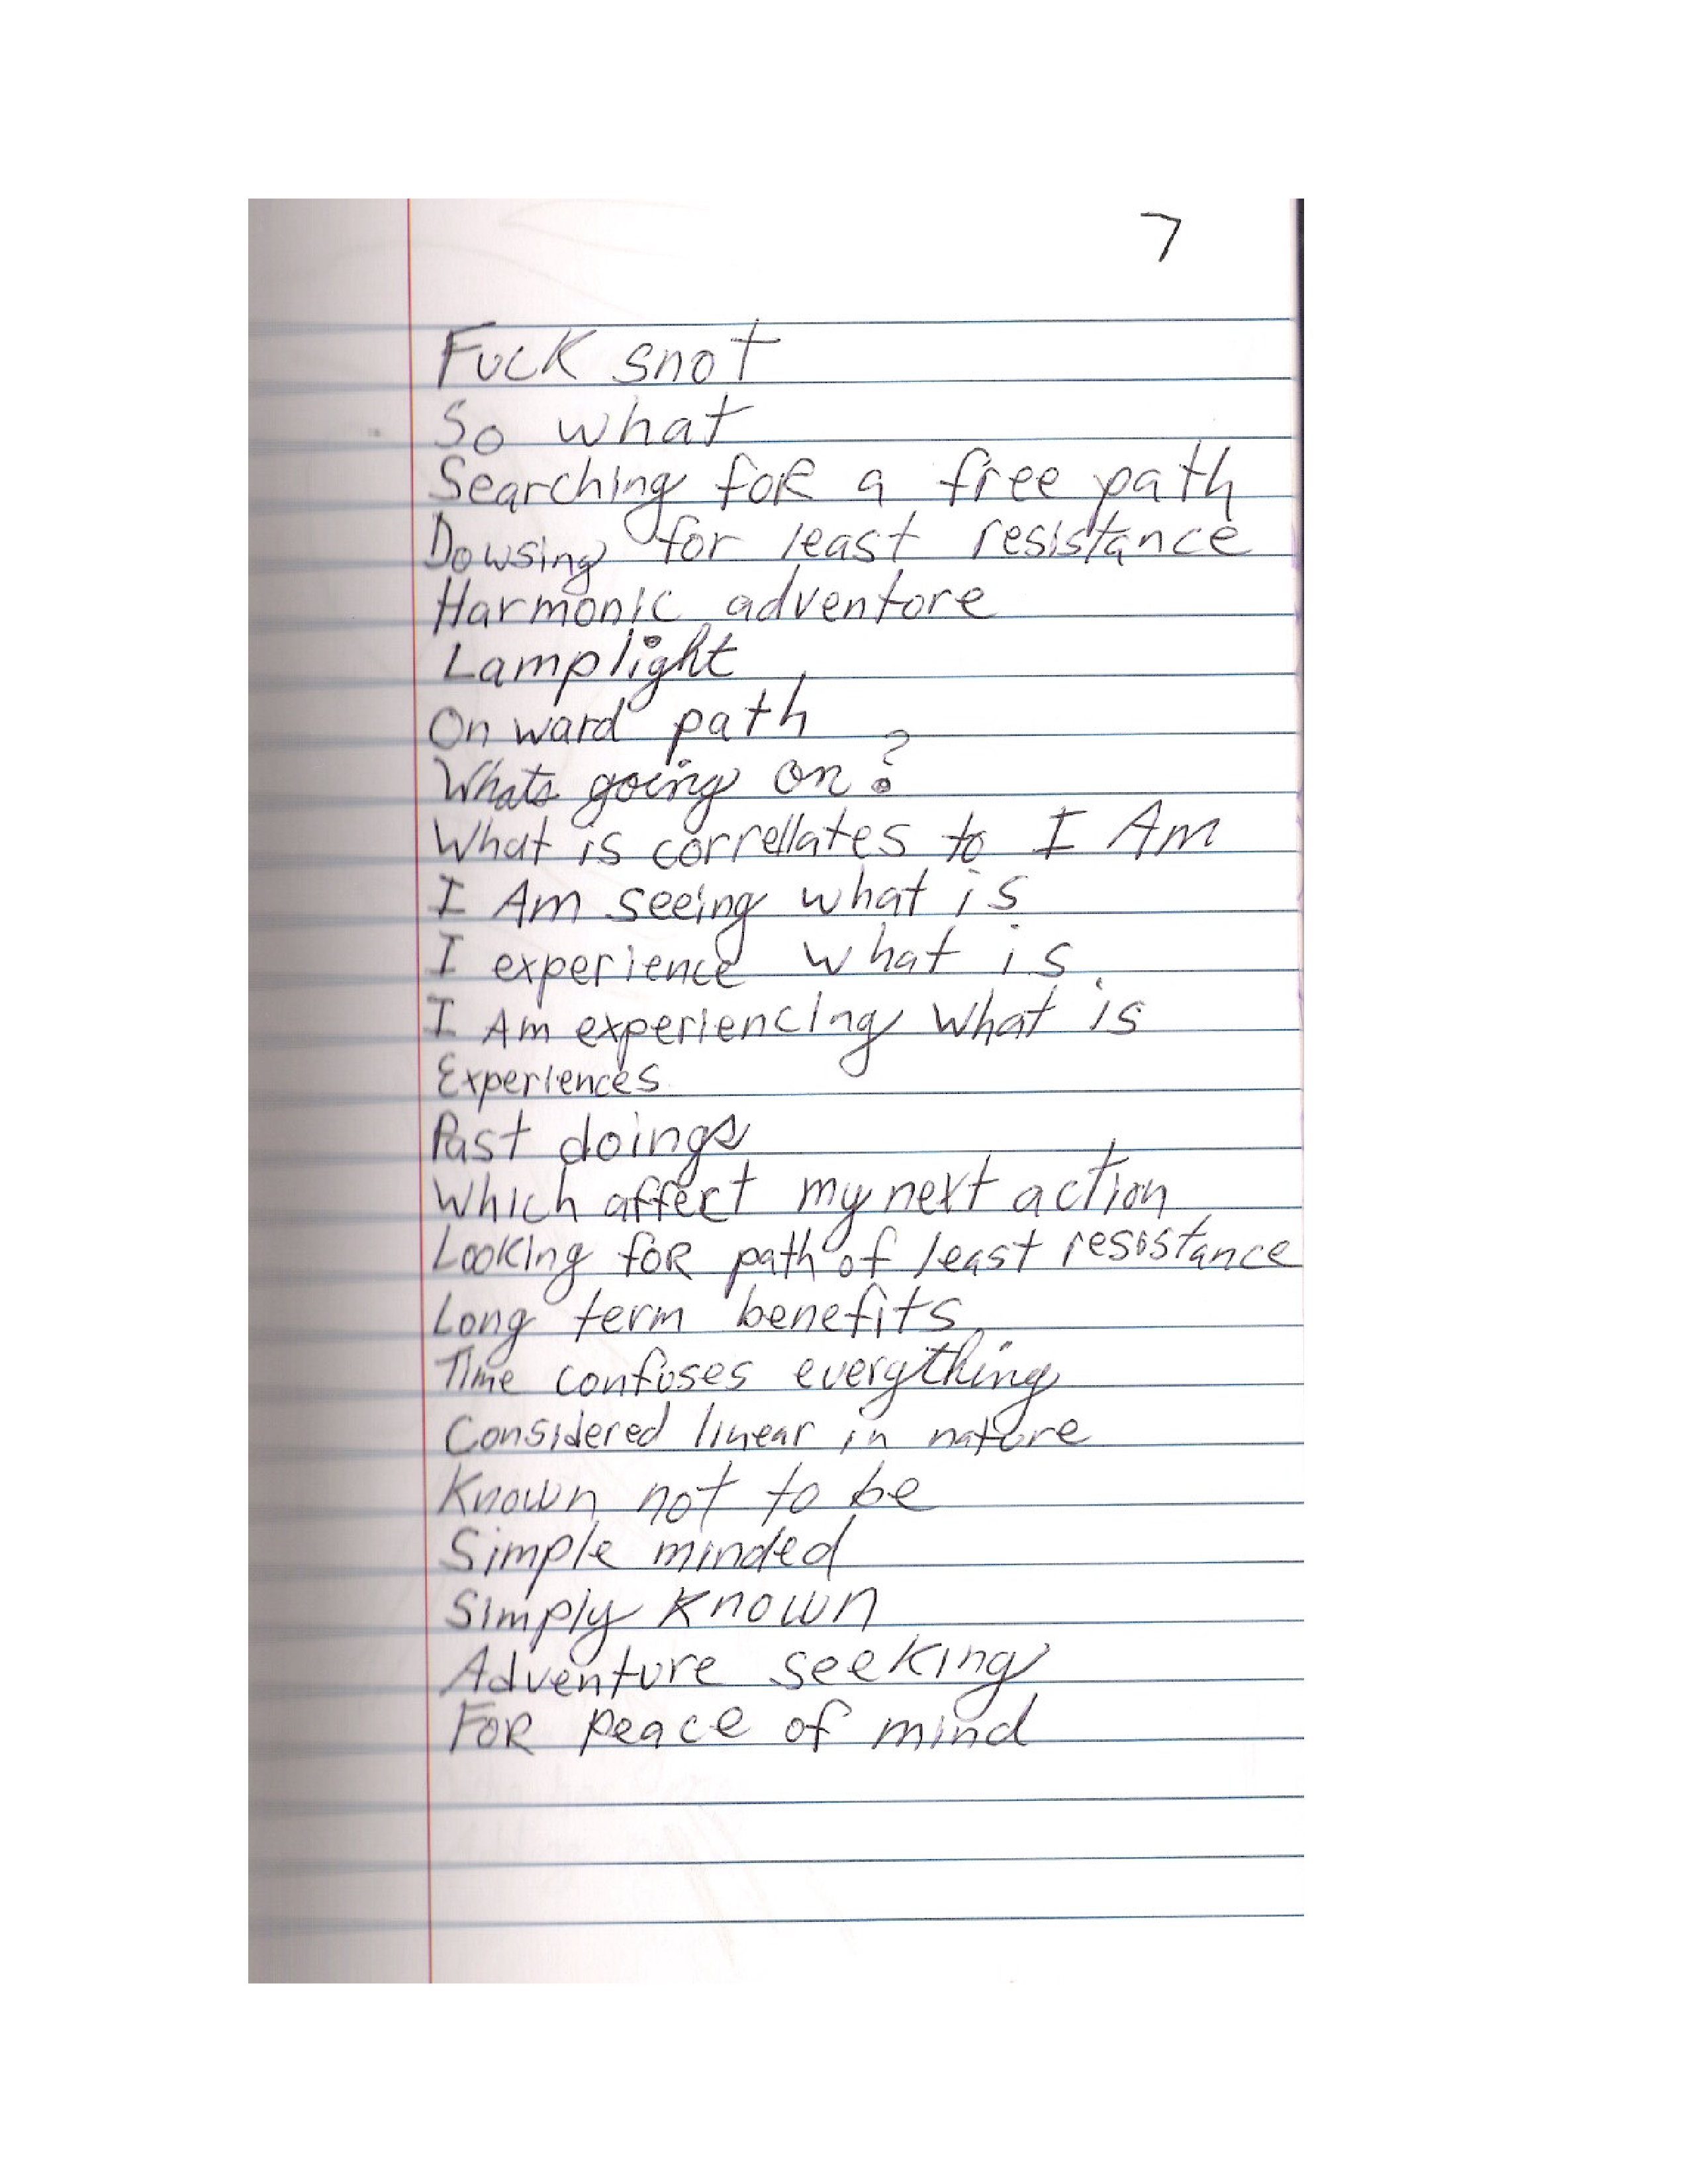 7
Fuck snot
So what
Searching foR a free path
Dowsing for least resistance
Harmonic adventure
Lamplight
On ward path
Whats going on?
What is correllates to I Am
I Am seeing what is
I experience what is
I Am experiencing what is
Experiences
Past doings
Which affect my next action
Looking foR path of least resistance
Long term benefits
Time confuses everything
Considered linear in nature
Known not to be
Simple minded
Simply Known
Adventure seeking
FoR peace of mind